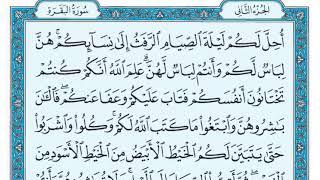 سُورَةُ البَقَرَةِ
الجُزْءُ الثَّانِي
أُحِلَّ لَكُمْ لَيْلَةَ ٱلصِّيَامِ ٱلرَّفَثُ إِلَىٰ نِسَآئِكُمْ ۚ هُنَّ
لِبَاسٌ لَّكُمْ وَأَنتُمْ لِبَاسٌ لَّهُنَّ ۗ عَلِمَ ٱللَّهُ أَنَّكُمْ كُنتُمْ
تَخْتَانُونَ أَنفُسَكُمْ فَتَابَ عَلَيْكُمْ وَعَفَا عَنكُمْ ۖ فَٱلْـَٰٔنَ
بَـٰشِرُوهُنَّ وَٱبْتَغُوا۟ مَا كَتَبَ ٱللَّهُ لَكُمْ ۚ وَكُلُوا۟ وَٱشْرَبُوا۟
حَتَّىٰ يَتَبَيَّنَ لَكُمُ ٱلْخَيْطُ ٱلْأَبْيَضُ مِنَ ٱلْخَيْطِ ٱلْأَسْوَدِ مِنَ